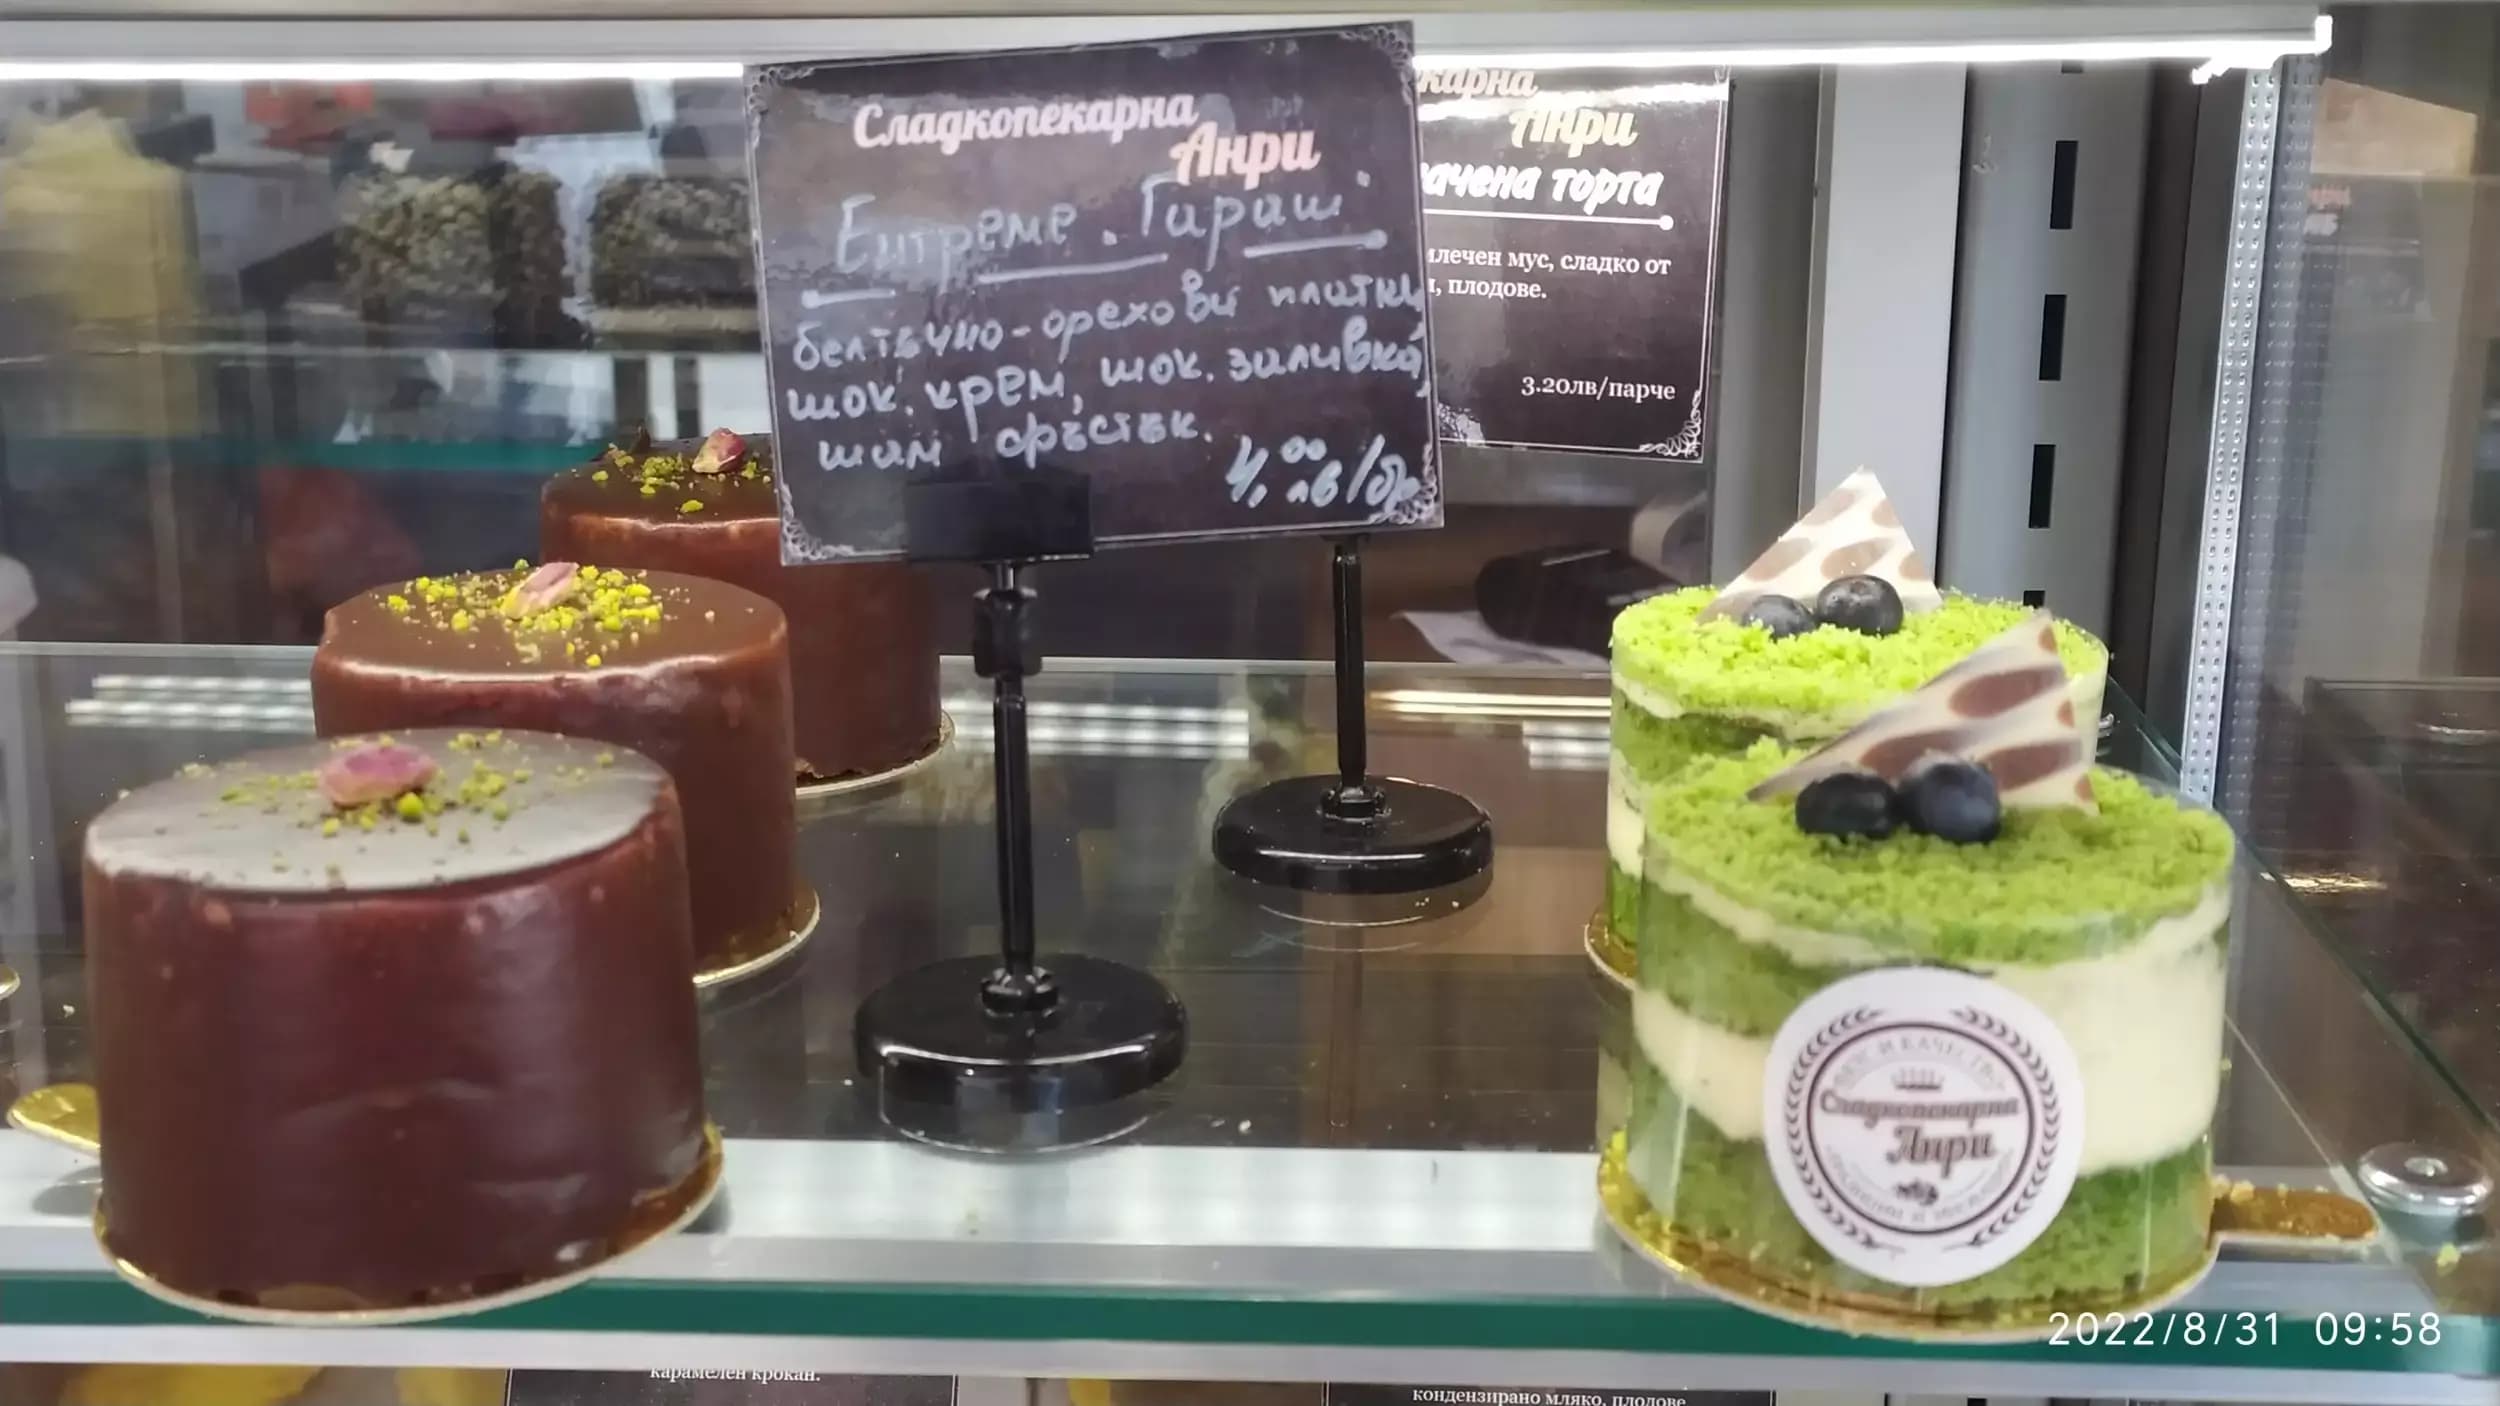 Сладкопекарна
Анри
Ентреме "Гараш"
белтъчно-орехови платки,
шок. крем, шок. заливка,
шам фъстък.
4,00 лв/бр
карна
Анри
торта
млечен мус, сладко от
, плодове.
3.20лв/парче
ВКУС И КАЧЕСТВО
Сладкопекарна
Анри
2022/8/31 09:58
карамелен крокан.
кондензирано мляко, плодове